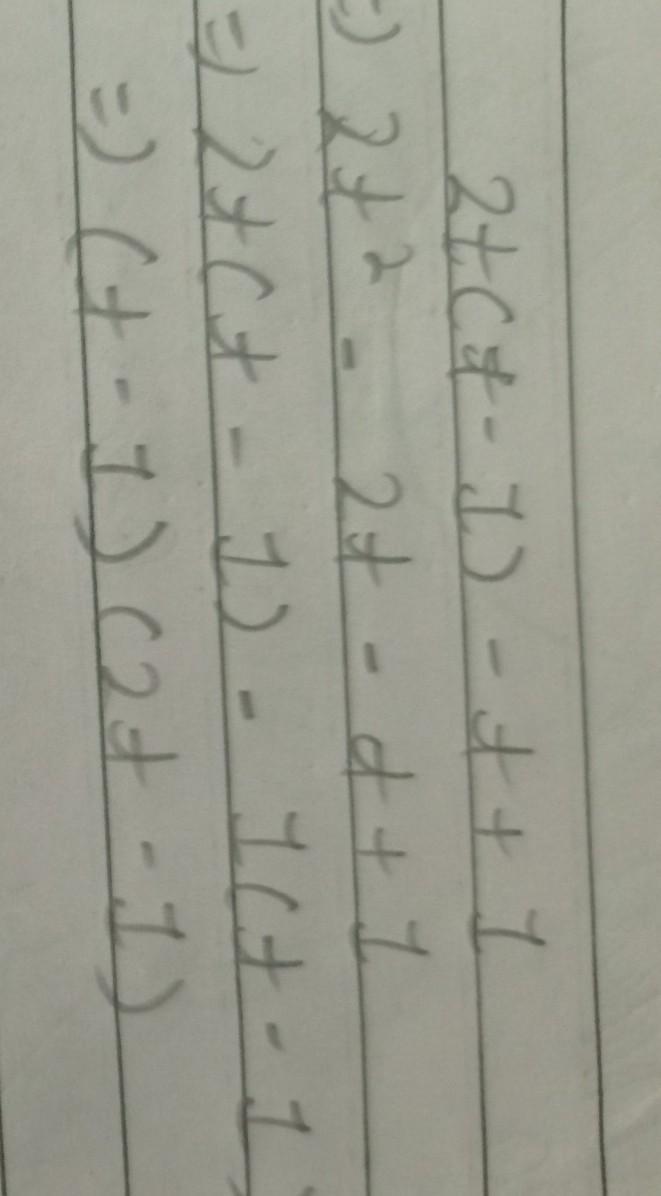 2t(t-1)-t+1
=) 2t² - 2t - t + 1
=) 2t(t-1) - 1(t-1)
=) (t-1)(2t-1)